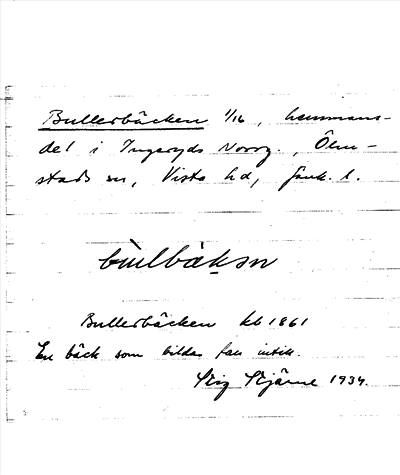 Bullerbäcken 1/16, hemmans-
del i Ingeryds Norrg., Ölm-
stads sn, Vista hd, Jönk. l.
bùlbäkən
Bullerbäcken kb 1861
En bäck som bildar fall intill.
Stig Stjärne 1934.